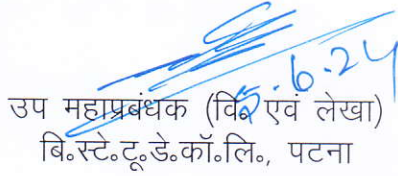 5.6.24
उप महाप्रबंधक (वि० एवं लेखा)
बि०स्टे०टू०डे०कॉ०लि०, पटना